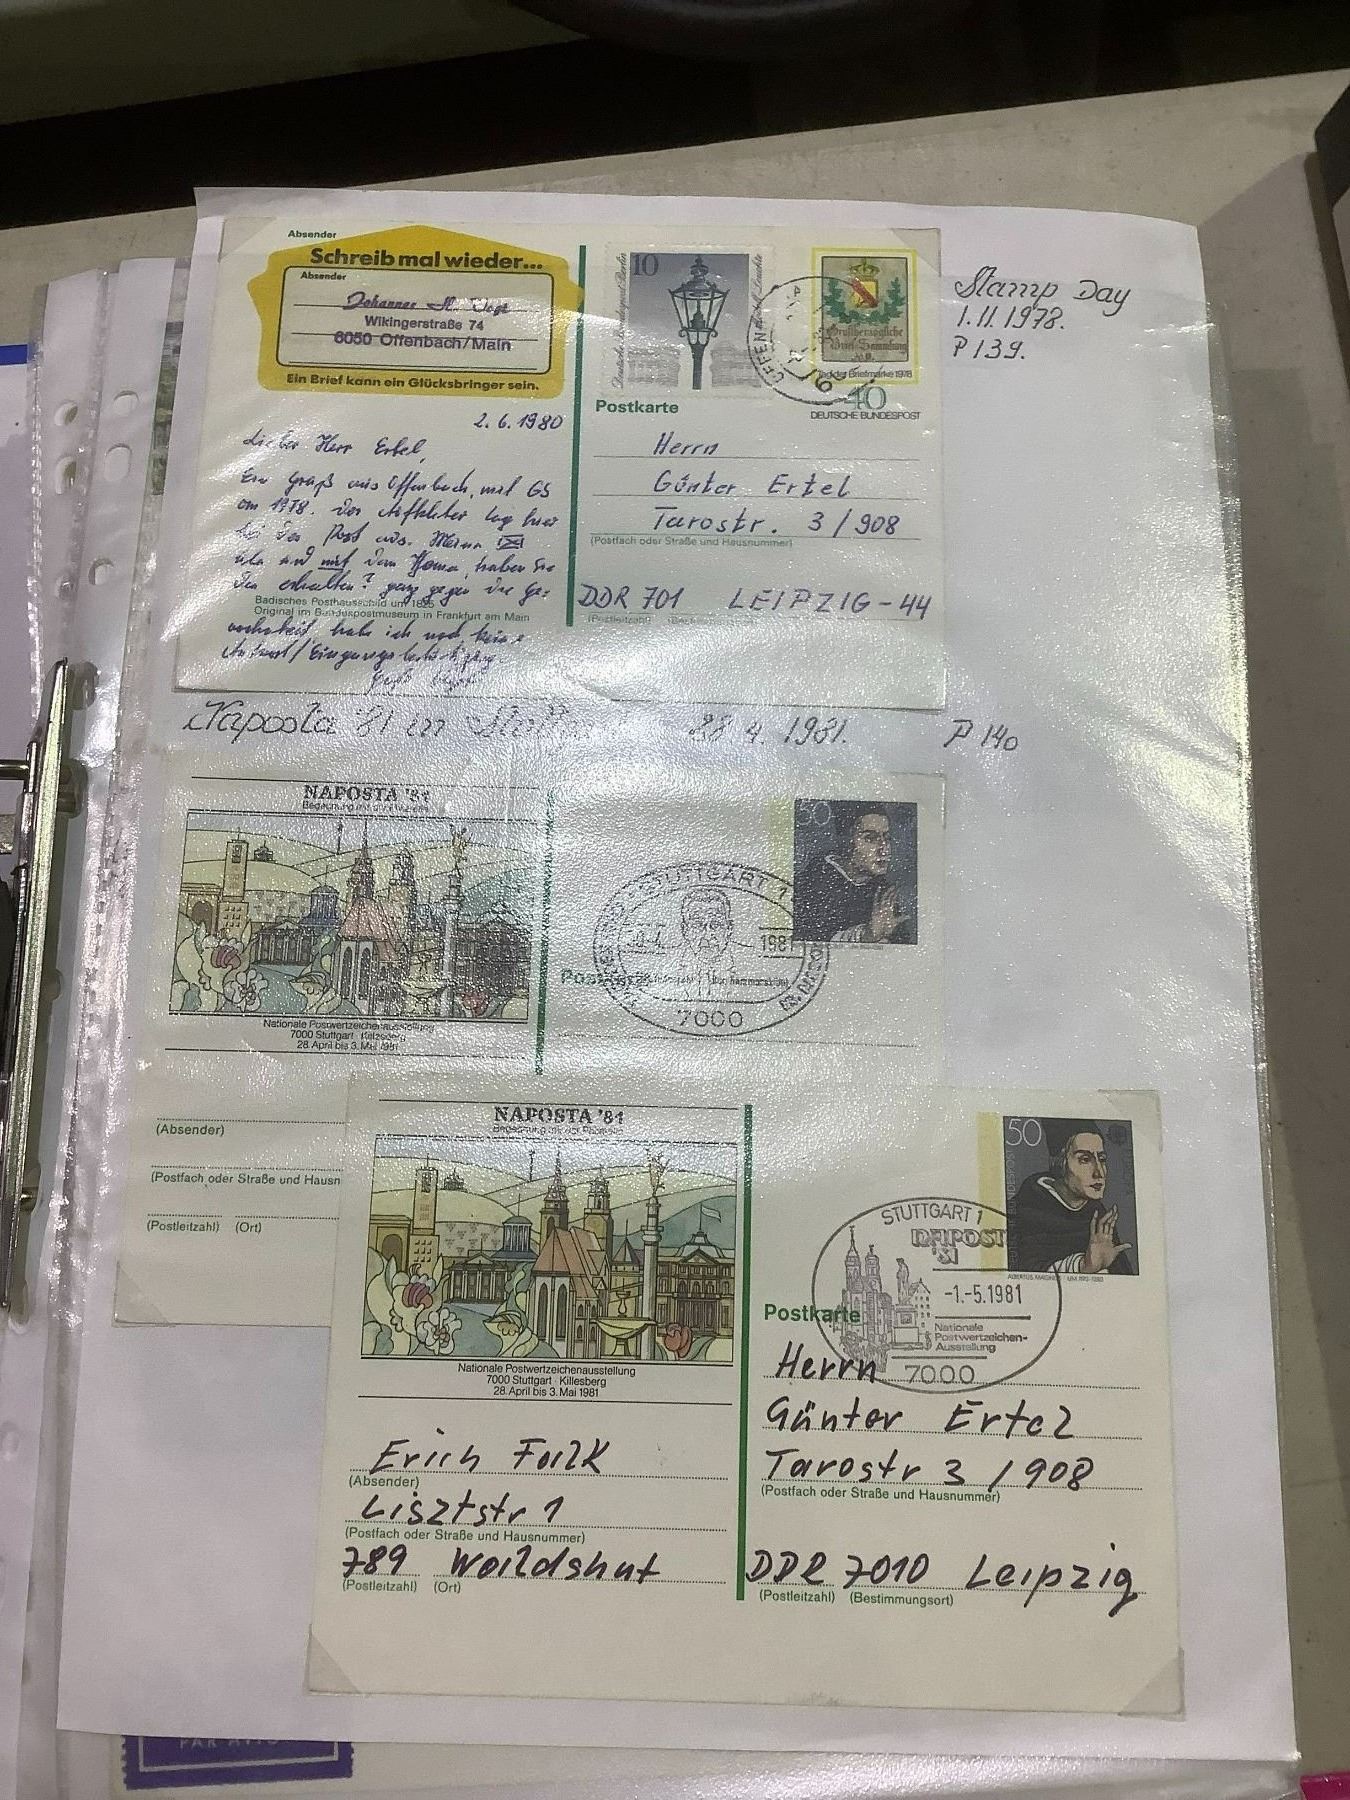 Absender
Schreib mal wieder...
Absender
Johannes H. Vogt
Wikingerstraße 74
6050 Offenbach/Main
Ein Brief kann ein Glücksbringer sein.
2.6.1980
Lieber Herr Ertel,
Ein Gruß aus Offenbach, mit GS
von 1978. Der Aufkleber lag hier
bei der Post aus. Meinen
haben Sie
den erhalten? ganz gegen die Ge-
Badisches Posthausschild um
Original im Bundespostmuseum in Frankfurt am Main
wohnheit habe ich noch keine
Antwort/Eingangsbestätigung.
10
Deutsche Bundespost Berlin
OFFENBACH
Großherzogliche
Brief-Sammlung
Tag der Briefmarke 1978
40
DEUTSCHE BUNDESPOST
Postkarte
Herrn
Günter Ertel
Tarostr. 3/908
(Postfach oder Straße und Hausnummer)
DDR 701 LEIPZIG-44
(Postleitzahl)
Stamp Day
1.11.1978.
P 139.
Naposta '81 in 28.4.1981. P 140
NAPOSTA '81
Nationale Postwertzeichenausstellung
7000 Stuttgart · Killesberg
28. April bis 3. Mai 1981
(Absender)
(Postfach oder Straße und Hausn
(Postleitzahl) (Ort)
50
STUTTGART 1
1981
7000
NAPOSTA '81
Nationale Postwertzeichenausstellung
7000 Stuttgart · Killesberg
28. April bis 3. Mai 1981
Erich Falk
(Absender)
Lisztstr 1
(Postfach oder Straße und Hausnummer)
789 Waldshut
(Postleitzahl) (Ort)
50
ALBERTUS MAGNUS · UM 1193-1280
STUTTGART 1
NAPOSTA
'81
-1.-5.1981
Nationale
Postwertzeichen-
Ausstellung
7000
Postkarte
Herrn
Günter Ertel
Tarostr 3/908
(Postfach oder Straße und Hausnummer)
DDR 7010 Leipzig
(Postleitzahl) (Bestimmungsort)
PAR AVION